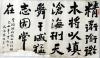 精衛銜微
木將以填
滄海刑天
舞干戚猛
志固常
在